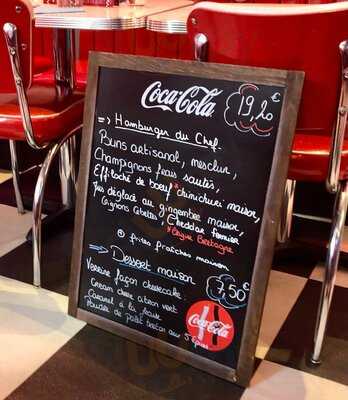 Coca-Cola
19,20
€
=> Hamburger du Chef
Buns artisanal, mesclun,
Champignons frais sautés,
Effiloché de boeuf * chimichuri maison,
Jus déglacé au gingembre maison,
oignons Cébettes, Cheddar fermier
* Origine Bretagne
+ frites fraîches maison
=> Dessert maison
7,50 €
Verrine façon cheesecake
Cream cheese citron vert
Caramel à la fraise
Poudre de palet breton aux 5 épices
Coca-Cola